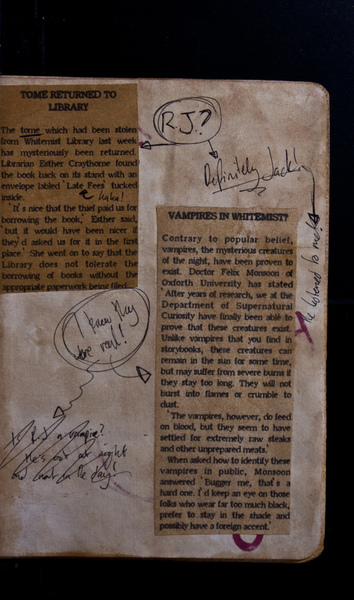 TOME RETURNED TO
LIBRARY
The tome which had been stolen
from Whitemist Library last week
has mysteriously been returned.
Librarian Esther Craythorne found
the book back on its stand with an
envelope labled 'Late Fees' tucked
inside.
haha!
'It's nice that the thief paid us for
borrowing the book,' Esther said,
'but it would have been nicer if
they'd asked us for it in the first
place.' She went on to say that the
Library does not tolerate the
borrowing of books without the
appropriate paperwork being filed.
R.J?
Definitely Jack!
he listened to me!
VAMPIRES IN WHITEMIST?
Contrary to popular belief,
vampires, the mysterious creatures
of the night, have been proven to
exist. Doctor Felix Monsoon of
Oxforth University has stated
'After years of research, we at the
Department of Supernatural
Curiosity have finally been able to
prove that these creatures exist.
Unlike vampires that you find in
storybooks, these creatures can
remain in the sun for some time,
but may suffer from severe burns if
they stay too long. They will not
burst into flames or crumble to
dust.
'The vampires, however, do feed
on blood, but they seem to have
settled for extremely raw steaks
and other unprepared meats.'
When asked how to identify these
vampires in public, Monsoon
answered 'Bugger me, that's a
hard one. I'd keep an eye on those
folks who wear far too much black,
prefer to stay in the shade and
possibly have a foreign accent.'
I knew they
were real!
a vampire?
He's out at night
and in the day!